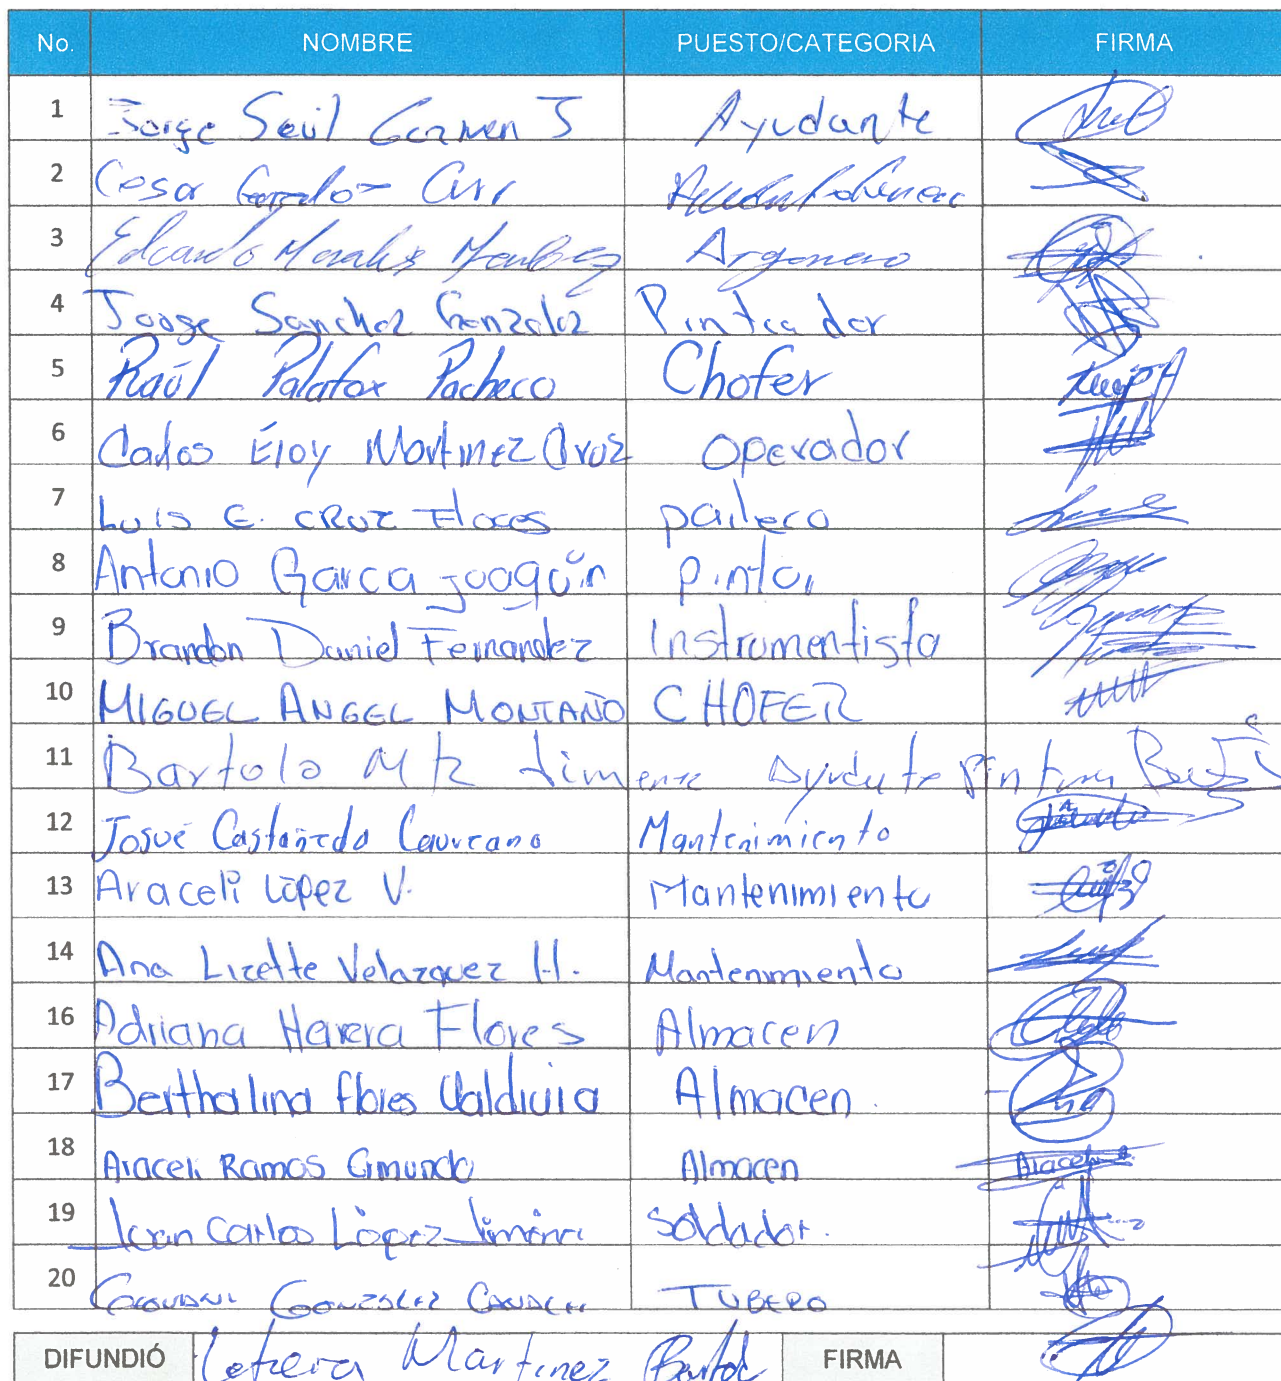 No. NOMBRE PUESTO/CATEGORIA FIRMA
1 Jorge Saúl Carmen J Ayudante
2 Cesar
3 Eduardo Morales Argonero
4 Jorge Sanchez Gonzalez Pinteador
5 Raúl Palafox Pacheco Chofer
6 Carlos Eloy Martinez Cruz Operador
7 Luis E. CRUZ Flores paileco
8 Antonio Garca Joaquín pintor
9 Brandon Daniel Fernandez Instrumentista
10 MIGUEL ANGEL MONTAÑO CHOFER
11 Bartolo Mtz
12 Josué Castañeda Laureano Mantenimiento
13 Araceli López V. Mantenimiento
14 Ana Lizette Velazquez H. Mantenimiento
16 Adriana Herrera Flores Almacen
17 Berthalina flores Valdivia Almacen.
18 Araceli Ramos Almacen Araceli
19 Juan Carlos López Soldador.
20 GONZALEZ TUBERO
DIFUNDIÓ Martinez FIRMA